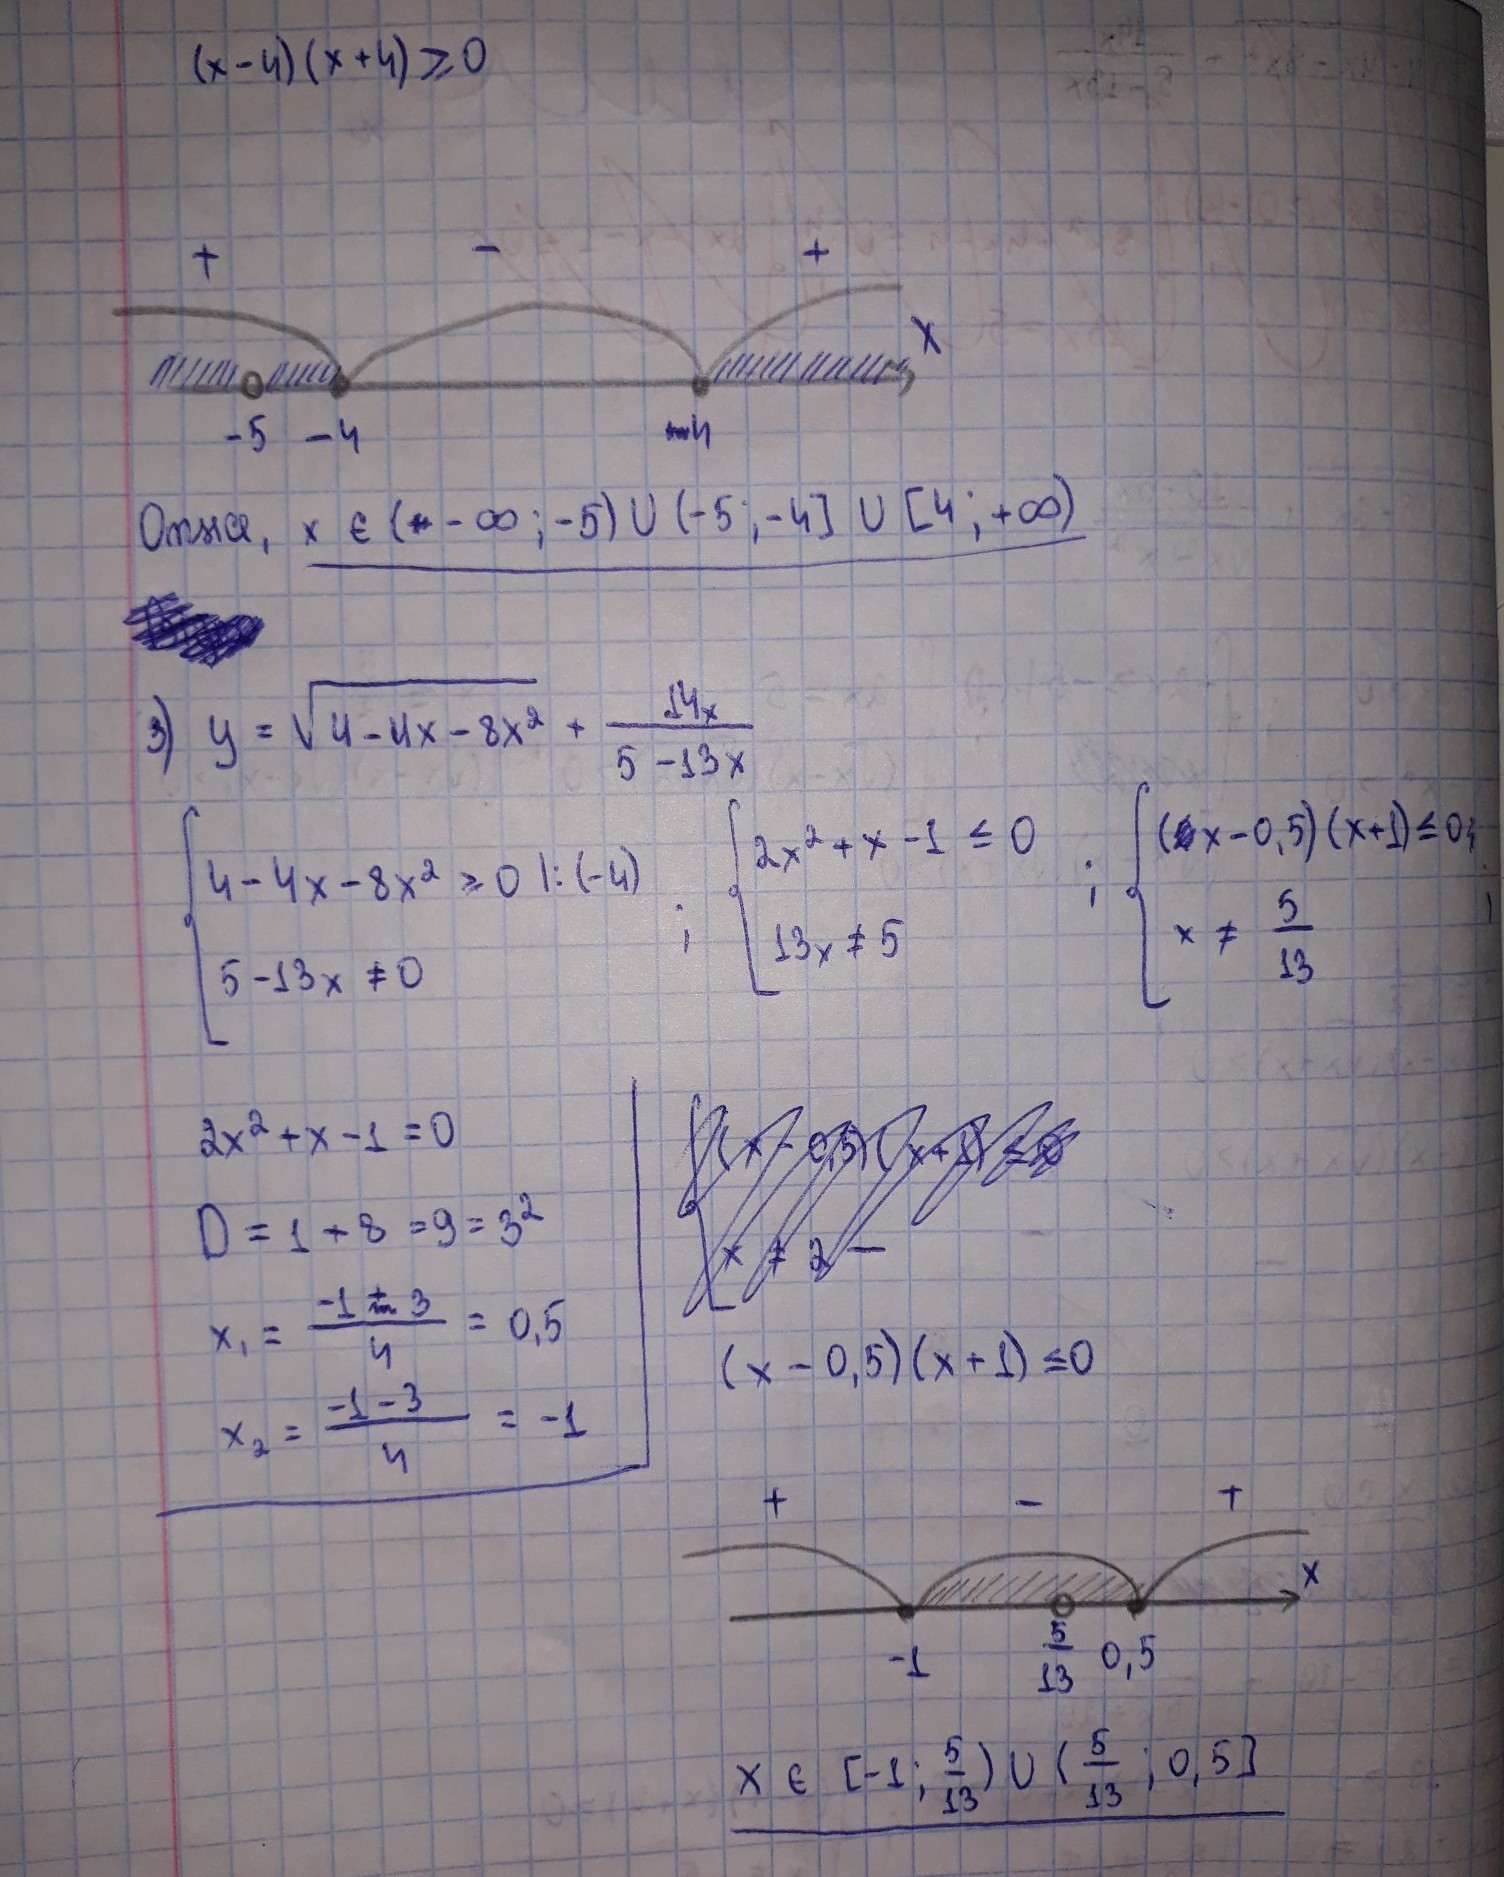 (x-4)(x+4) ≥ 0
+ - +
x
-5 -4 4
Отже, x ∈ (-∞; -5) ∪ (-5; -4] ∪ [4; +∞)
3) y = √(4-4x-8x²) + 14x/(5-13x)
{ 4-4x-8x² ≥ 0 |:(-4) ; { 2x²+x-1 ≤ 0 ; { (x-0,5)(x+1) ≤ 0;
5-13x ≠ 0 13x ≠ 5 x ≠ 5/13
2x²+x-1 = 0
D = 1+8 = 9 = 3²
x₁ = (-1+3)/4 = 0,5
x₂ = (-1-3)/4 = -1
(x-0,5)(x+1) ≤ 0
x ≠ 2 -
(x-0,5)(x+1) ≤ 0
+ - +
x
-1 5/13 0,5
x ∈ [-1; 5/13) ∪ (5/13; 0,5]